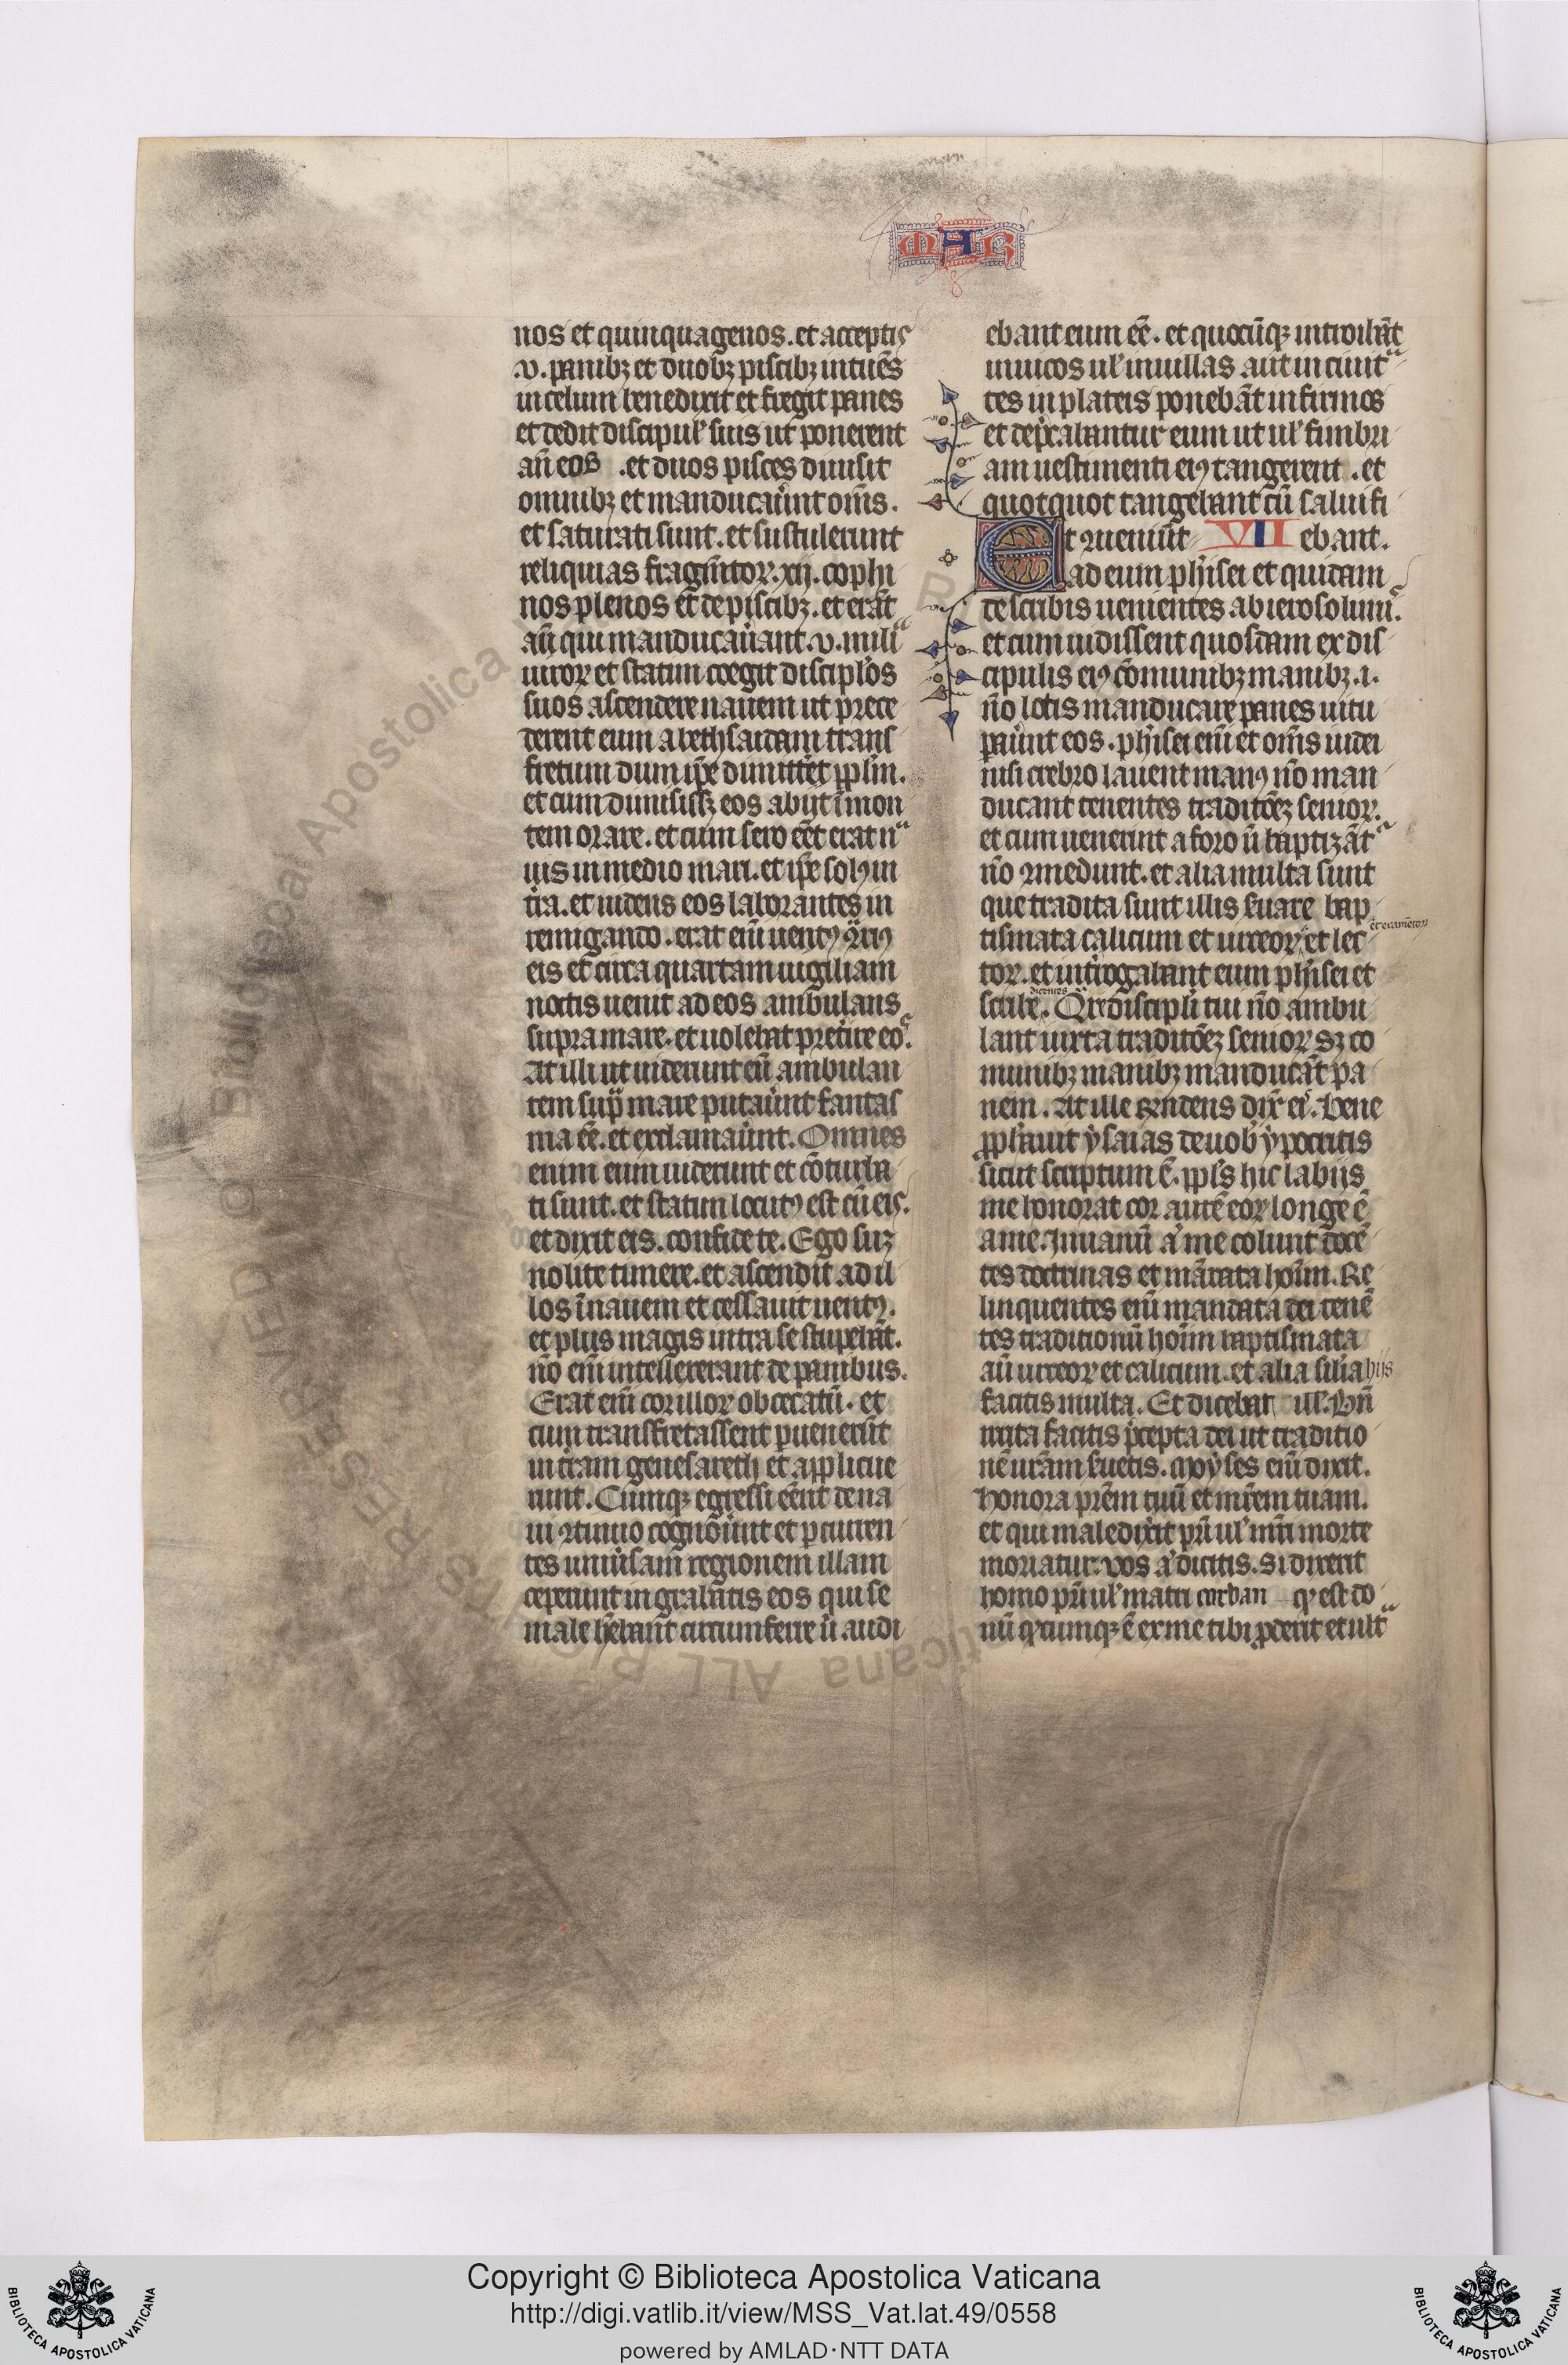 MAR
nos et quinquagenos. et acceptis
.v. panibꝫ et duobꝫ piscibꝫ intuēs
in celum benedixit et fregit panes
et dedit discipul' suis ut ponerent
an̄ eos .et duos pisces diuisit
omnibꝫ et manducaūnt om̄s.
et saturati sunt. et sustulerunt
reliquias fragm̄toꝝ. xij. cophi
nos plenos et de piscibꝫ. et erāt
aū qui manducauāant. v. mili
uiroꝝ et statim coegit discip̄los
suos ascendere nauem ut prece
derent eum a bethsaidam trans
fretum dum ip̄e dimittet pp̄lm.
et cum dimisissꝫ eos abijt ī mon
tem orare. et cum sero eēt erat na
uis in medio mari. et ip̄e solꝰ in
tr̄a. et uidens eos laborantes in
remigando. erat eni̅ uentꝰ ꝯ̄riꝰ
eis et circa quartam uigiliam
noctis uenit ad eos ambulans
supra mare. et uolebat preterire eos.
At illi ut uiderunt eū ambulan
tem sup̄ mare putaūnt fantas
ma eē. et exclamaūnt. Omnes
enim eum uiderunt et cōturba
ti sunt. et statim locutꝰ est cū eis.
et dixit eis. confidete. Ego suꝫ
nolite timere. et ascendit ad il
los ī nauem et cessauit uentꝰ.
et plus magis intra se stupebāt.
nō eni̅ intellexerant de panibus.
Erat eni̅ cor illoꝝ obcecatū. et
cum transfretassent ꝑuenerūt
in tr̄am genesareth et applicue
runt. Cumqꝫ egressi eēnt de na
ui ꝯtinuo cognōunt et ꝑcurren
tes uniūsam regionem illam
ceperunt in grabatis eos qui se
male hēbant circumferre ū audi
ebant eum eē. et quocūqꝫ introibāt
in uicos ul' in uillas aut in ciuita
tes in plateis ponebāt infirmos
et dep̄cabantur eum ut ul' fimbri
am uestimenti eiꝰ tangerent .et
quotquot tangebant eū salui fi
Et ꝯueniūt VII ebant.
ad eum ph̄isei et quidam
de scribis uenientes ab ierosolimis.
et cum uidissent quosdam ex dis
cipulis eiꝰ cōmunibꝫ manibꝫ .i.
nō lotis manducare panes uitu
paūnt eos. ph̄isei eni̅ et om̄s iudei
nisi crebro lauent manꝰ nō man
ducant tenentes traditōeꝫ senioꝝ.
et cum uenerint a foro n̄ baptizāt
nō ꝯmedunt. et alia multa sunt
que tradita sunt illis ẜuare bap
tismata calicum et urceoꝝ et lec
et eramētoꝝ
toꝝ. et int̄rogabant eum ph̄isei et
dicentes
scribe. Qr̄e discip̄li tui nō ambu
lant iuxta traditōeꝫ senioꝝ sꝫ co
munibꝫ manibꝫ manducāt pa
nem. At ille rn̄dens dix̄ eis. Bene
pp̄h̄auit ẏsaias de uob' ẏpocritis
sicut scriptum ē. pp̄ls hic labijs
me honorat cor autē eoꝝ longe ē
a me. In uanū aū me colunt docē
tes doctrinas et mādata hoīm. Re
linquentes eni̅ mandata dei tenē
tes traditionū hoīm baptismata
aū urceoꝝ et calicum. et alia silīa hijs
facitis multa. Et dicebat ill'. Bn̄
irrita facitis p̄cepta dei ut traditio
nē ur̄am ẜuetis. Moẏses eni̅ dixit.
Honora pr̄em tuū et mr̄em tuam.
et qui maledixit pr̄i ul' mr̄i morte
moriatur. vos aū dicitis. si dixerit
homo pr̄i ul' matri corban qꝫ est do
nū qꝫcumqꝫ ē ex me tibi ꝓderit et ult̄
Copyright © Biblioteca Apostolica Vaticana
http://digi.vatlib.it/view/MSS_Vat.lat.49/0558
powered by AMLAD·NTT DATA
BIBLIOTECA APOSTOLICA VATICANA
BIBLIOTECA APOSTOLICA VATICANA